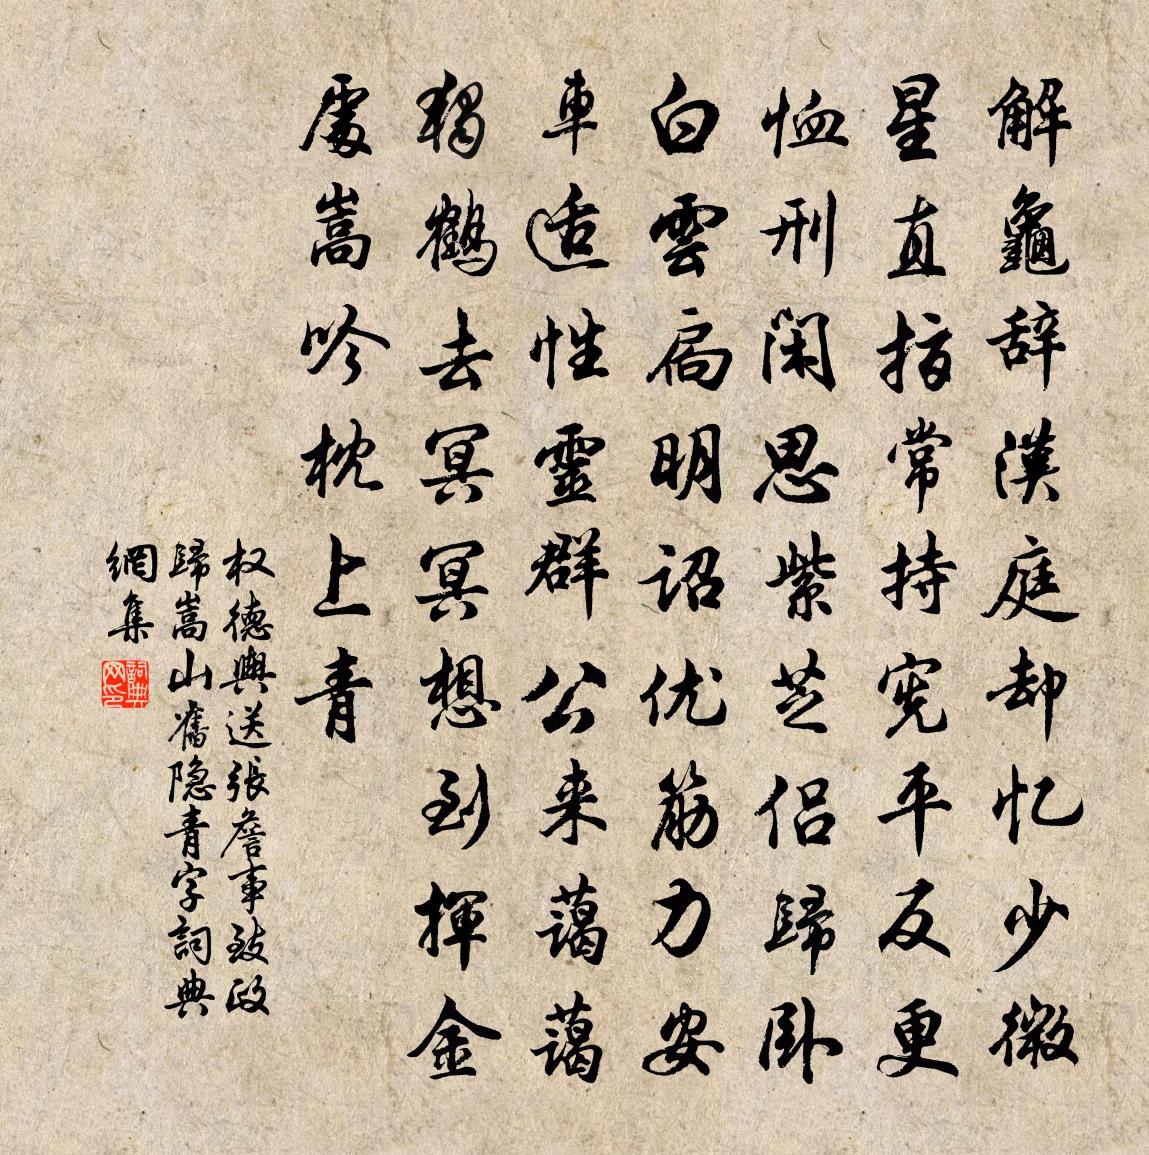 解龜辞漢庭却忆少微
星直指常持宪平反更
恤刑閑思紫芝侣歸卧
白雲扃明詔优筋力安
車适性靈群公来藹藹
獨鶴去冥冥想到揮金
處嵩吟枕上青
权德輿送張詹事致政
歸嵩山舊隐青字詞典
網集
詞典网印